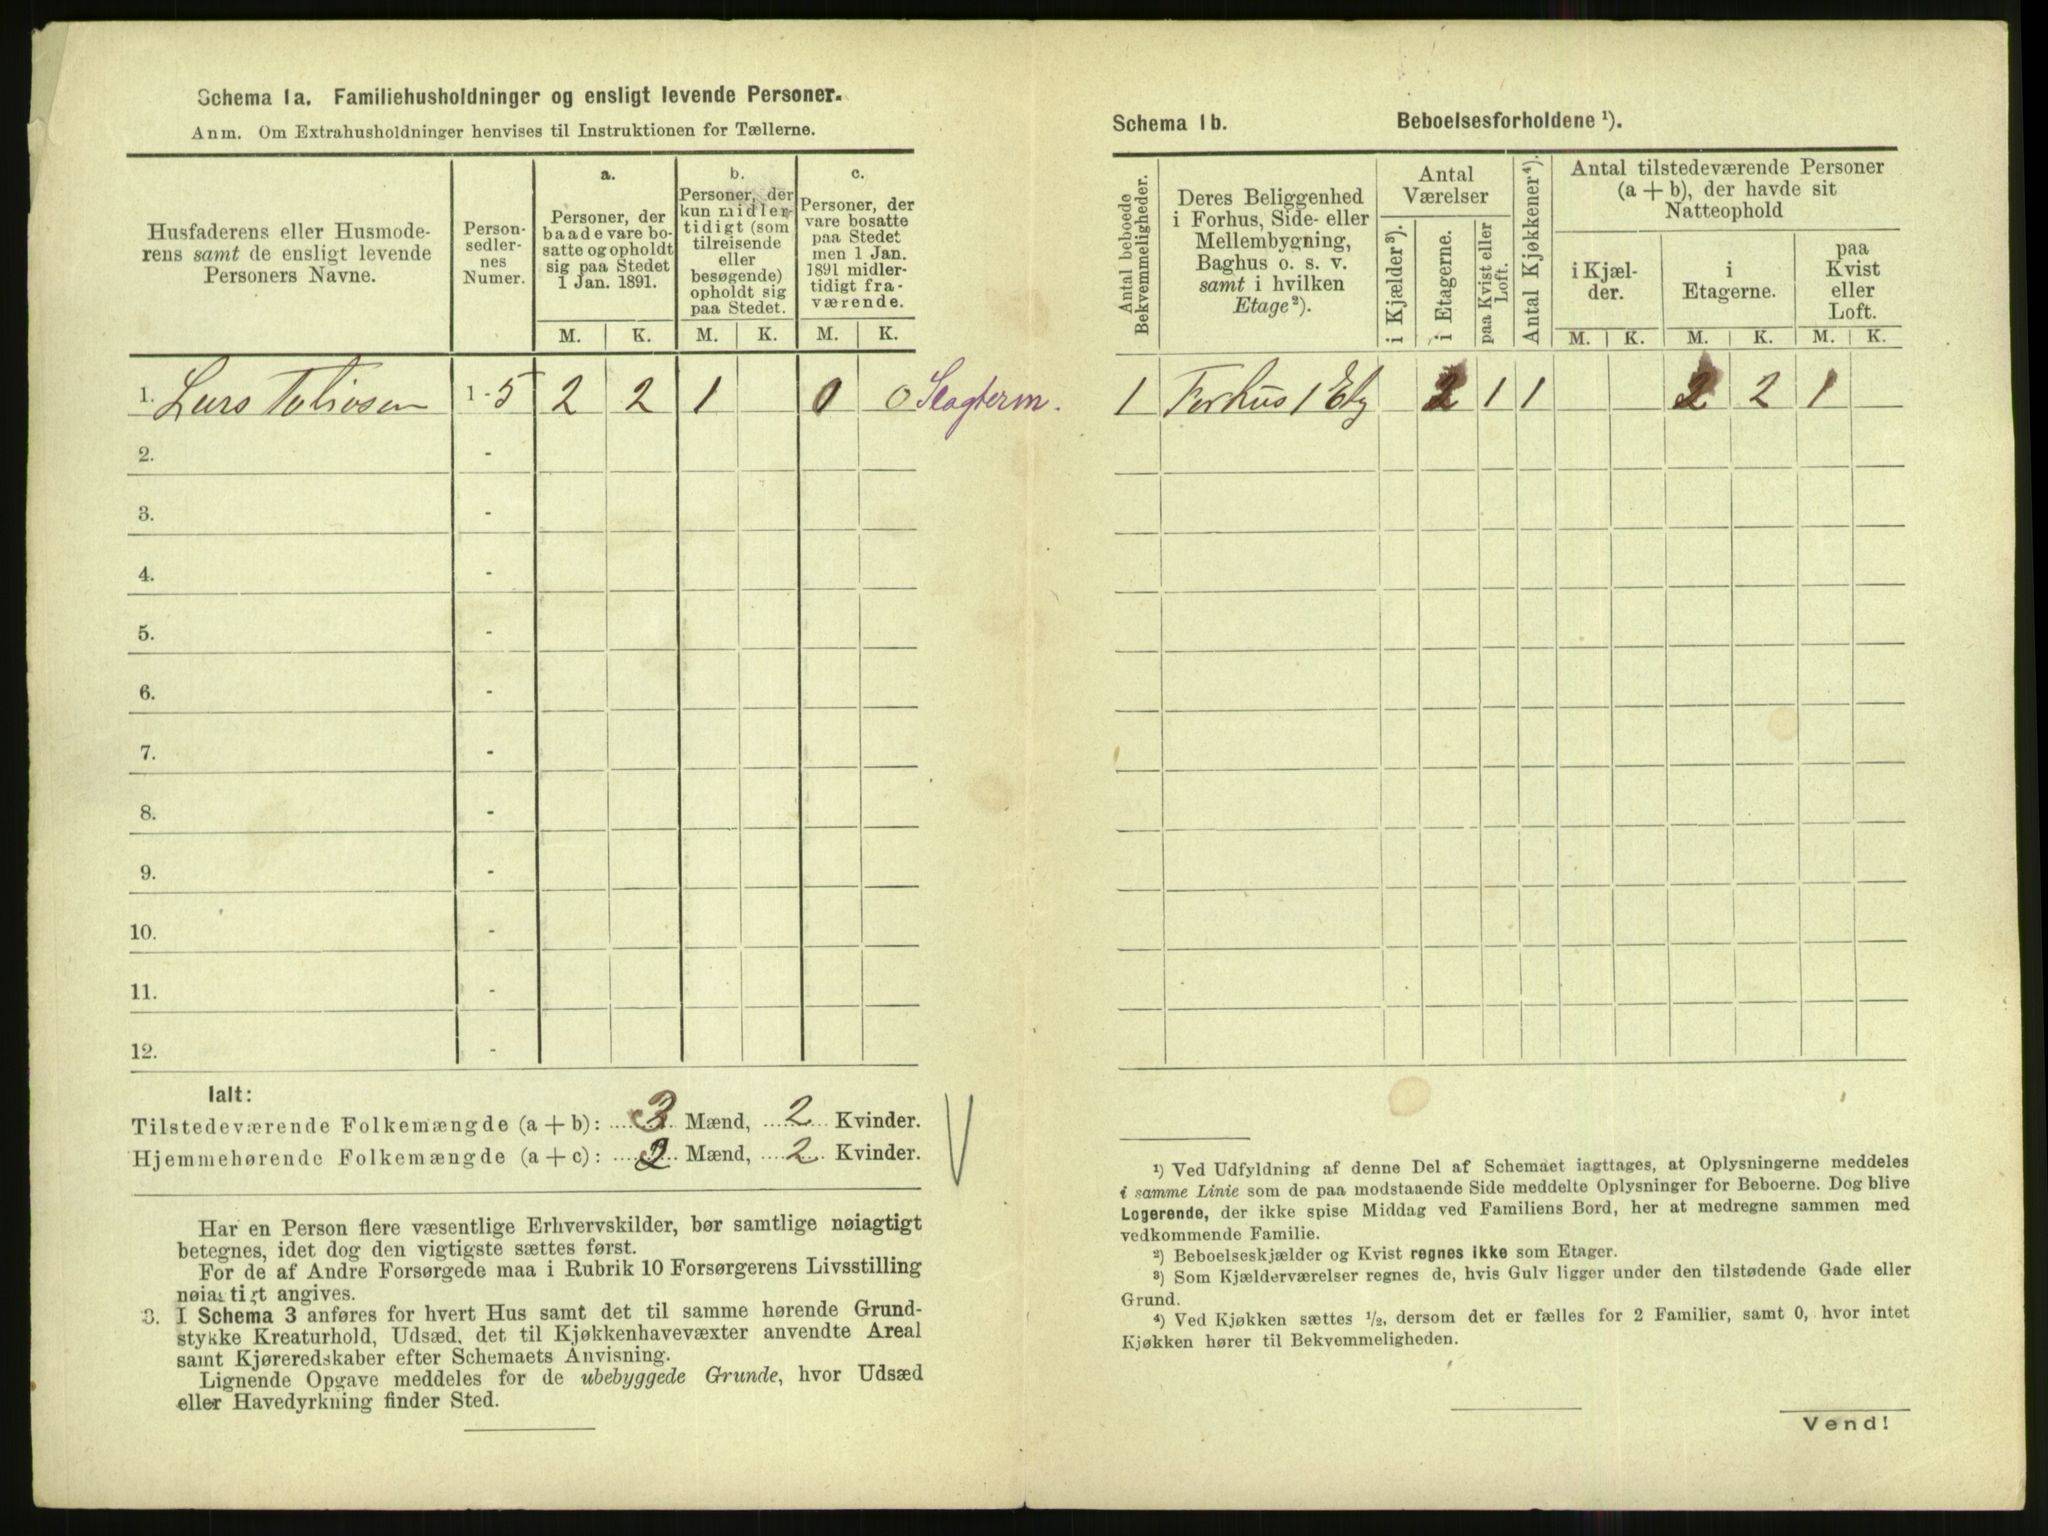 Schema 1a. Familiehusholdninger og ensligt levende Personer.
Anm. Om Extrahusholdninger henvises til Instruktionen for Tællerne.
Husfaderens eller Husmoderens samt de ensligt levende Personers Navne.
Person-sedler-nes Numer.
a.
Personer, der baade vare bosatte og opholdt sig paa Stedet 1 Jan. 1891.
b.
Personer, der kun midlertidigt (som tilreisende eller besøgende) opholdt sig paa Stedet.
c.
Personer, der vare bosatte paa Stedet men 1 Jan. 1891 midlertidigt fraværende.
M. K. M. K. M. K.
1. Lars Tobiasen 1 - 5 2 2 1 0 0 Slagterm.
2. -
3. -
4. -
5. -
6. -
7. -
8. -
9. -
10. -
11. -
12. -
Ialt:
Tilstedeværende Folkemængde (a + b): 3 Mænd, 2 Kvinder.
Hjemmehørende Folkemængde (a + c): 2 Mænd, 2 Kvinder.
Har en Person flere væsentlige Erhvervskilder, bør samtlige nøiagtigt
betegnes, idet dog den vigtigste sættes først.
For de af Andre Forsørgede maa i Rubrik 10 Forsørgerens Livsstilling
nøiagtigt angives.
3. I Schema 3 anføres for hvert Hus samt det til samme hørende Grund-
stykke Kreaturhold, Udsæd, det til Kjøkkenhavevæxter anvendte Areal
samt Kjøreredskaber efter Schemaets Anvisning.
Lignende Opgave meddeles for de ubebyggede Grunde, hvor Udsæd
eller Havedyrkning finder Sted.
Schema 1b. Beboelsesforholdene ¹).
Antal beboede Bekvemmeligheder.
Deres Beliggenhed i Forhus, Side- eller Mellembygning, Baghus o. s. v. samt i hvilken Etage²).
Antal Værelser
i Kjælder³).
i Etagerne.
paa Kvist eller Loft.
Antal Kjøkkener⁴).
Antal tilstedeværende Personer (a + b), der havde sit Natteophold
i Kjælder.
i Etagerne.
paa Kvist eller Loft.
M. K. M. K. M. K.
1 Forhus 1 Etg 2 1 1 2 2 1
¹) Ved Udfyldning af denne Del af Schemaet iagttages, at Oplysningerne meddeles
i samme Linie som de paa modstaaende Side meddelte Oplysninger for Beboerne. Dog blive
Logerende, der ikke spise Middag ved Familiens Bord, her at medregne sammen med
vedkommende Familie.
²) Beboelseskjælder og Kvist regnes ikke som Etager.
³) Som Kjælderværelser regnes de, hvis Gulv ligger under den tilstødende Gade eller
Grund.
⁴) Ved Kjøkken sættes ½, dersom det er fælles for 2 Familier, samt 0, hvor intet
Kjøkken hører til Bekvemmeligheden.
Vend!